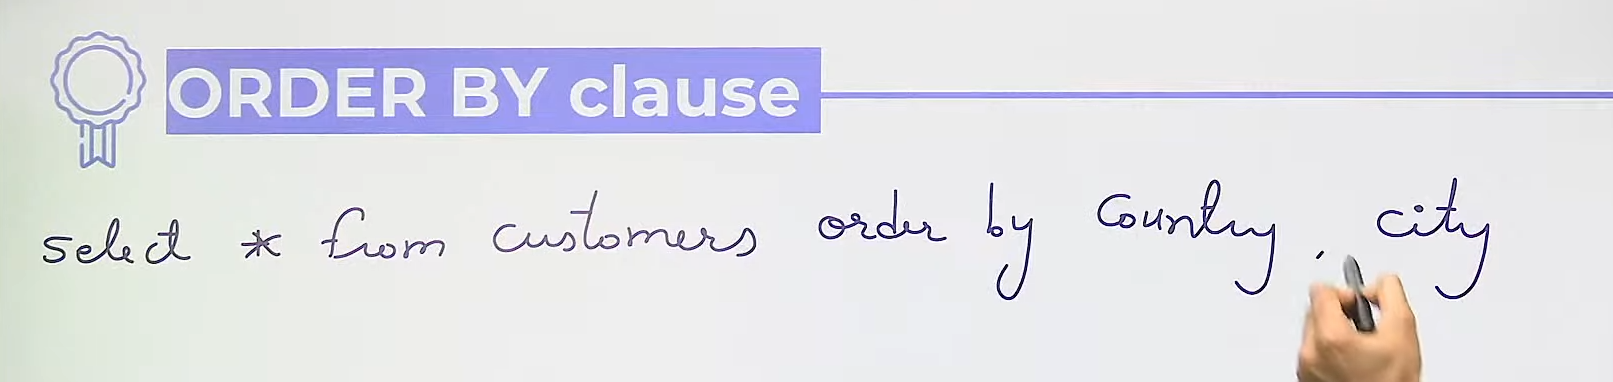 ORDER BY clause
select * from customers order by Country, city